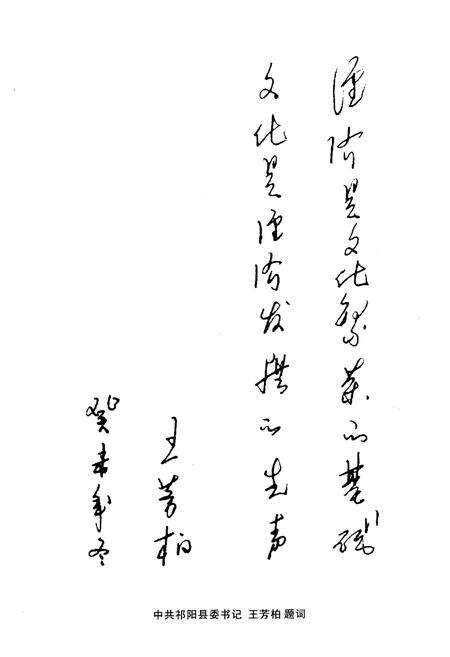 经济是文化繁荣的基础
文化是经济发展的先声
王芳柏
癸未年冬
中共祁阳县委书记 王芳柏 题词